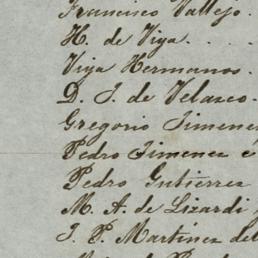 Francisco Vallejo.
H. de Viya. . . .
Viya Hermanos.
D. J. de Velasco.
Gregorio Jimenez
Pedro Jimenez é
Pedro Gutierrez
M. A. de Lizardi
J. P. Martinez del